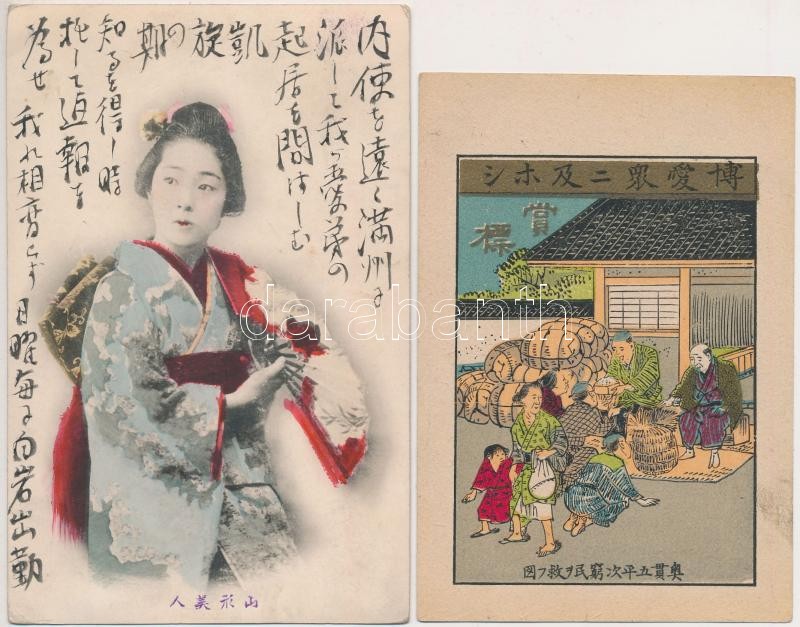 内使を遠く満州に
派して我が五弟の
起居を問はしむ
凱旋の期
知るを得し時
托して近報を
為せ 我れ相変らず 日曜毎に白岩出勤
山形美人
博愛衆ニ及ホシ
賞標
奥貫五平次窮民ヲ救フ図
darabanth